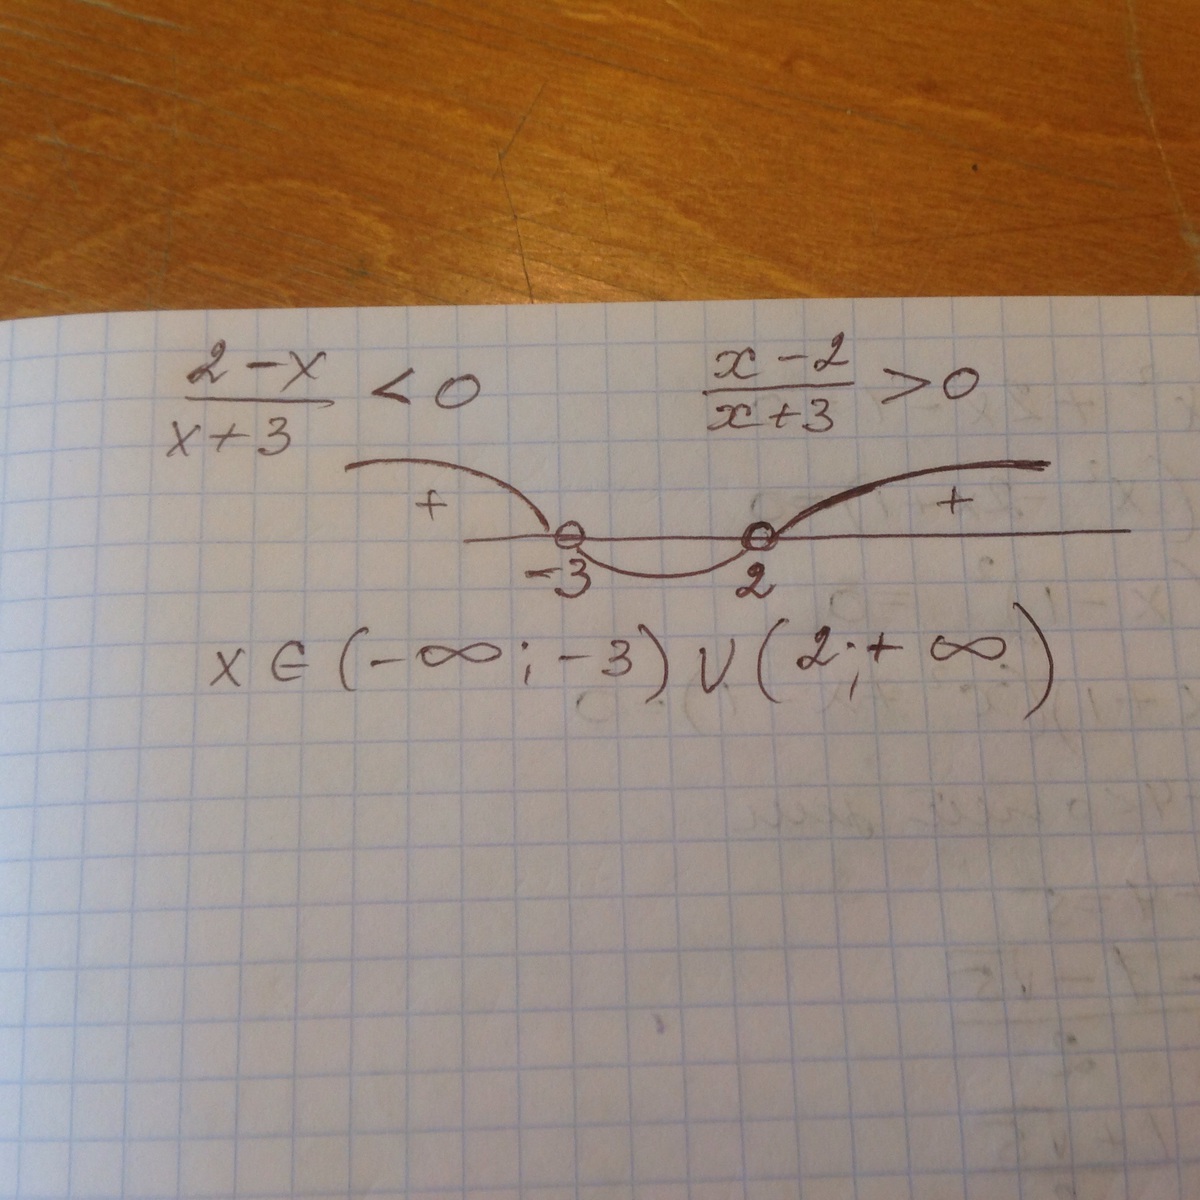 2-x / x+3 < 0    x-2 / x+3 > 0
+ +
-3 2
x ∈ (-∞; -3) ∪ (2; +∞)